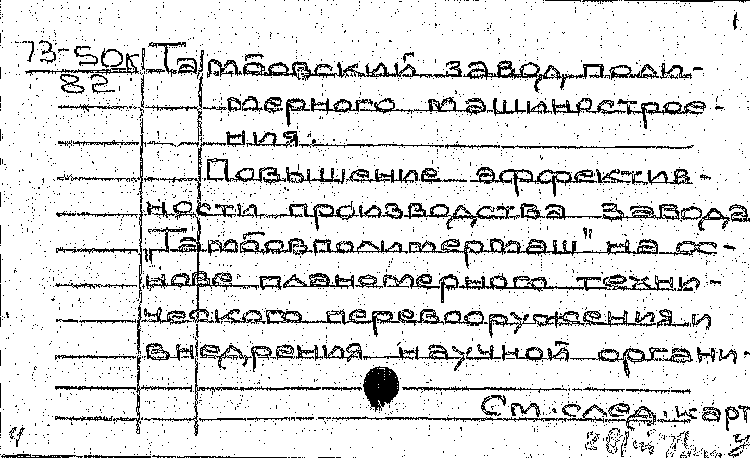 1
73-50к Тамбовский завод поли-
82
мерного машинострое-
ния.
Повышение эффектив-
ности производства завода
"Тамбовполимермаш" на ос-
нове планомерного техни-
ческого перевооружения и
внедрения научной органи-
См. след. карт
4